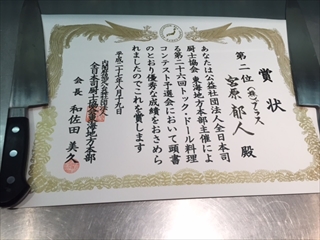 賞状
第二位 (株)プラス
宮原郁人殿
あなたは公益社団法人全日本司
厨士協会 東海地方本部主催によ
る第二十六回トック・ドール料理
コンテスト予選会において頭書
のとおり優秀な成績をおさめら
れましたのでこれを賞します
平成二十七年八月十九日
内閣府認定公益社団法人
全日本司厨士協会東海地方本部
会長 和佐田美久